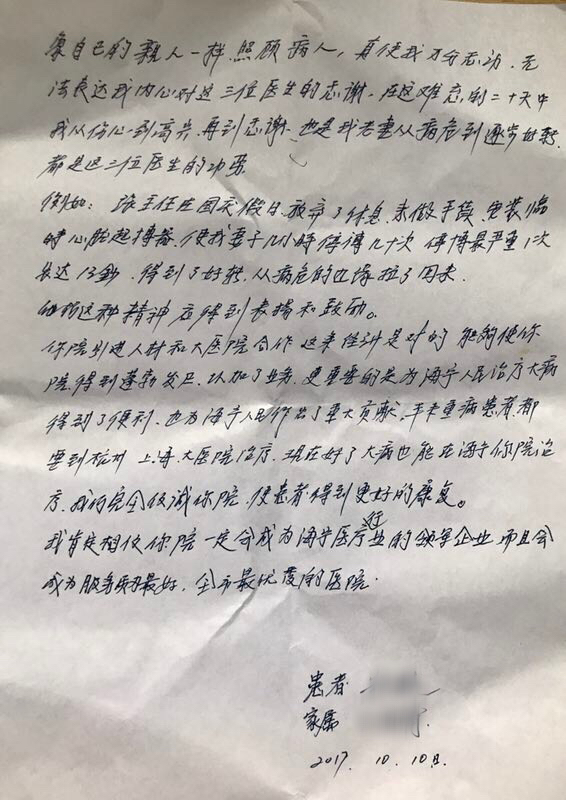 像自己的親人一样照顾病人，真使我万分感动。无
法表达我内心对这三位医生的感谢。在这难忘的二十天中
我从伤心到高兴，再到感谢，也是我老妻从病危到逐步好轉
都是这三位医生的功劳
例如：主任在国庆假日放弃了休息，来做手術，安装临
時心脏起搏器，使我妻子几小時停搏几十次 停博最严重1次
长达13秒，得到了好轉，从病危的边缘拉了回来。
他们这种精神应得到表揚和鼓励。
你院引进人材和大医院合作 这条性讲是对的 能夠使你
院得到蓬勃发展，以加了业务，更重要的是为海宁人民治疗大病
得到了便利，也为海宁人民作出了重大贡献，年老重病患者，都
要到杭州 上海大医院治疗，现在好了大病也能在海宁你院治
疗，我们完全板诚你院，使患者得到更好的康复。
我肯定相信你院一定会成为海宁医疗行业的领导企业，而且会
成为服务最好，全市最优质的医院。
患者
家属
2017. 10. 10日.